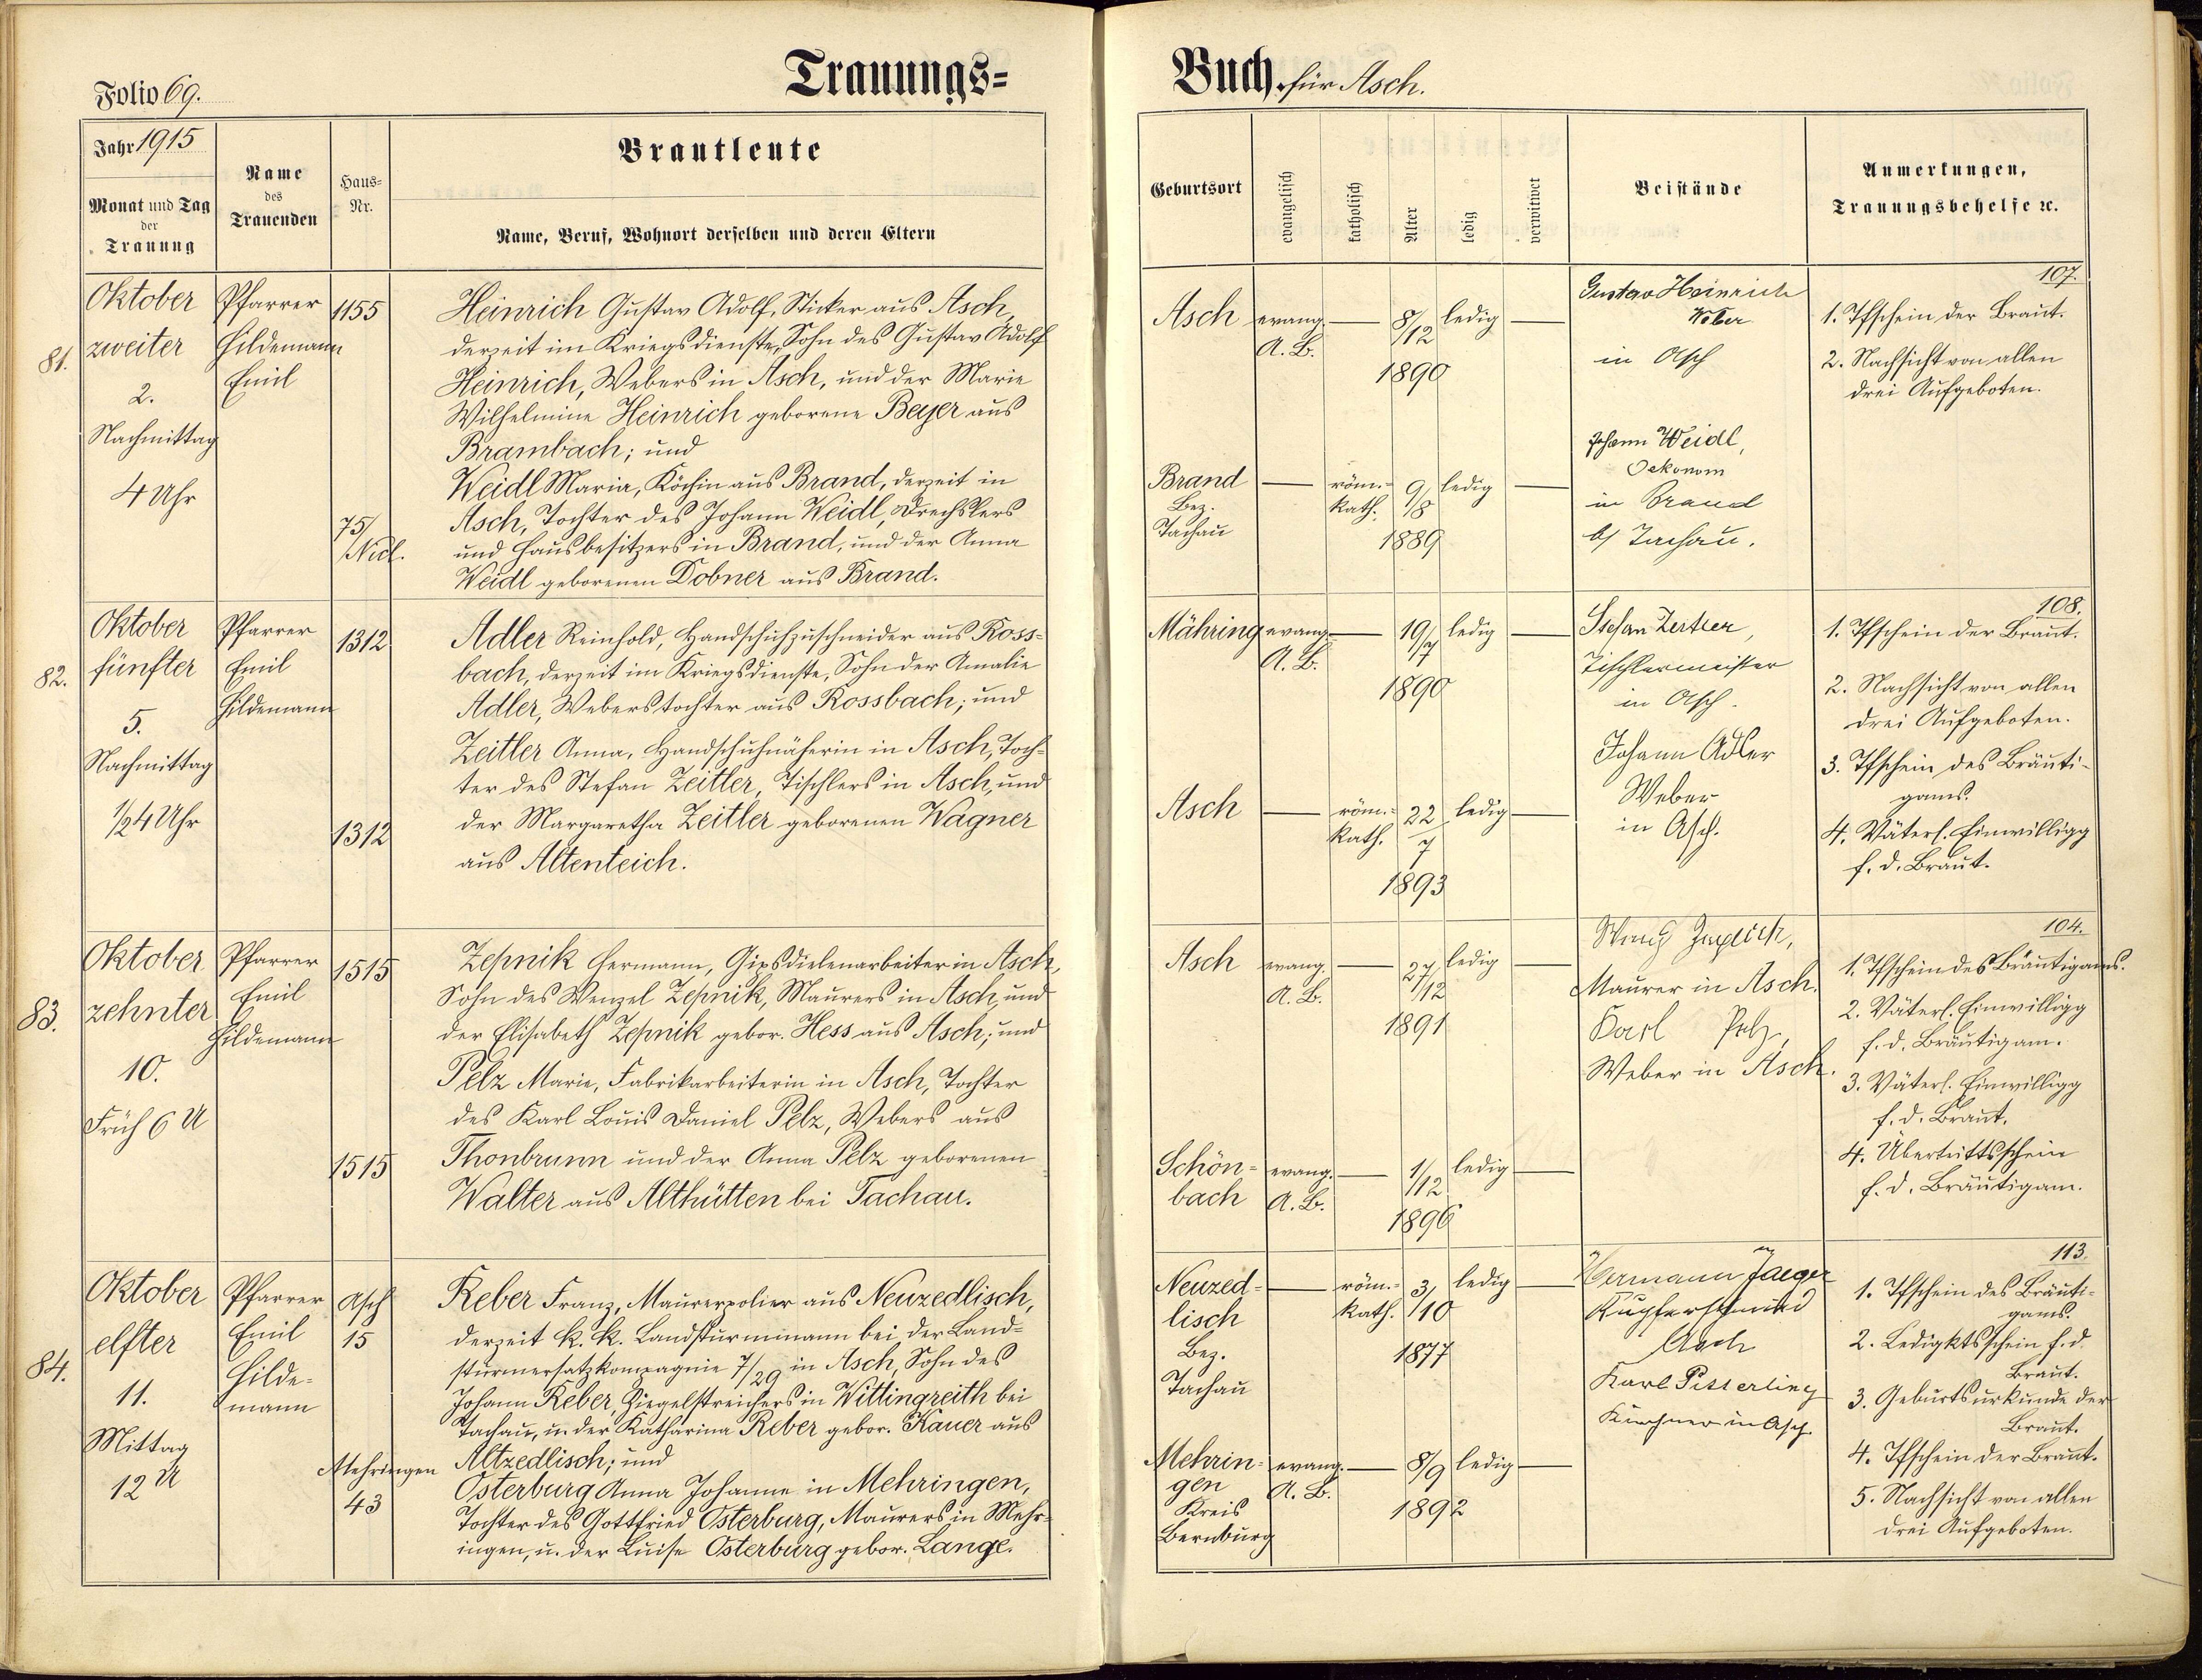 Folio 69.
Trauungs=
Jahr 1915
Monat und Tag
der
Trauung
Name
des
Trauenden
Haus=
Nr.
Brautleute
Name, Beruf, Wohnort derselben und deren Eltern
81.
Oktober
zweiter
2.
Nachmittag
4 Uhr
Pfarrer
Hildemann
Emil
1155
75/
Nidl.
Heinrich Gustav Adolf, Sticker aus Asch,
derzeit im Kriegsdienste, Sohn des Gustav Adolf
Heinrich, Webers in Asch, und der Marie
Wilhelmine Heinrich geborene Beyer aus
Brambach; und
Weidl Maria, Köchin aus Brand, derzeit in
Asch, Tochter des Johann Weidl, Drechslers
und Hausbesitzers in Brand, und der Anna
Weidl geborenen Dobner aus Brand.
82.
Oktober
fünfter
5.
Nachmittag
1/2 4 Uhr
Pfarrer
Emil
Hildemann
1312
1312
Adler Reinhold, Handschuhzuschneider aus Ross=
bach, derzeit im Kriegsdienste, Sohn der Amalie
Adler, Weberstochter aus Rossbach; und
Zeitler Anna, Handschuhnäherin in Asch, Toch=
ter des Stefan Zeitler, Tischlers in Asch, und
der Margaretha Zeitler geborenen Wagner
aus Altenteich.
83.
Oktober
zehnter
10.
Früh 6 U
Pfarrer
Emil
Hildemann
1515
1515
Zepnik Hermann, Gipsdielenarbeiter in Asch,
Sohn des Wenzel Zepnik, Maurers in Asch, und
der Elisabeth Zepnik gebor. Hess aus Asch; und
Pelz Marie, Fabrikarbeiterin in Asch, Tochter
des Karl Louis Daniel Pelz, Webers aus
Thonbrunn und der Anna Pelz geborenen
Walter aus Althütten bei Tachau.
84.
Oktober
elfter
11.
Mittag
12 U
Pfarrer
Emil
Hilde=
mann
Asch
15
Mehringen
43
Reber Franz, Maurerpolier aus Neuzedlisch,
derzeit k. k. Landsturmmann bei der Land=
sturmersatzkompagnie 7/29 in Asch, Sohn des
Johann Reber, Ziegelstreichers in Wittingreith bei
Tachau, u. der Katharina Reber gebor. Kauer aus
Altzedlisch; und
Osterburg Anna Johanne in Mehringen,
Tochter des Gottfried Osterburg, Maurers in Mehr=
ingen, u. der Luise Osterburg gebor. Lange.
Buch für Asch.
Geburtsort
evangelisch
katholisch
Alter
ledig
verwitwet
Beistände
Anmerkungen,
Trauungsbehelfe ꝛc.
Asch
evang.
A. B.
8/12
1890
ledig
Brand
Bez.
Tachau
röm.=
kath.
9/8
1889
ledig
Gustav Heinrich
Weber
in Asch
Johann Weidl,
Oekonom
in Brand
b/ Tachau.
107.
1. Tfschein der Braut.
2. Nachsicht von allen
drei Aufgeboten.
Mähring
evang.
A. B.
19/7
1890
ledig
Asch
röm.=
kath.
22
7
1893
ledig
Stefan Zeitler,
Tischlermeister
in Asch.
Johann Adler
Weber
in Asch.
108.
1. Tfschein der Braut.
2. Nachsicht von allen
drei Aufgeboten.
3. Tfschein des Bräuti=
gams.
4. Väterl. Einwilligg
f. d. Braut.
Asch
evang.
A. B.
27/12
1891
ledig
Schön=
bach
evang.
A. B.
1/12
1896
ledig
Maurer in Asch.
Karl Pelz,
Weber in Asch.
104.
1. Tfschein des Bräutigams.
2. Väterl. Einwilligg
f. d. Bräutigam.
3. Väterl. Einwilligg
f. d. Braut.
4. Übertrittsschein
f. d. Bräutigam.
Neuzed=
lisch
Bez.
Tachau
röm.=
kath.
3/10
1877
ledig
Mehrin=
gen
Kreis
Bernburg
evang.
A. B.
8/9
1892
ledig
Hermann Jaeger
Kupferschmied
Asch
Karl Pisterling
Kürschner in Asch.
113.
1. Tfschein des Bräuti=
gams.
2. Ledigktsschein f. d.
Braut.
3. Geburtsurkunde der
Braut.
4. Tfschein der Braut.
5. Nachsicht von allen
drei Aufgeboten.